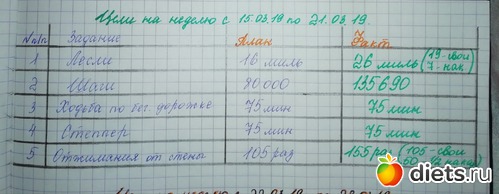 Цели на неделю с 15.03.19 по 21.03.19.
№п/п Задание План Факт
1 Лесли 16 миль 26 миль (19-свои 7-нак)
2 Шаги 80 000 135690
3 Ходьба по бег. дорожке 75 мин 75 мин
4 Степпер 75 мин 75 мин
5 Отжимания от стены 105 раз 155 раз (105-свои
diets.ru